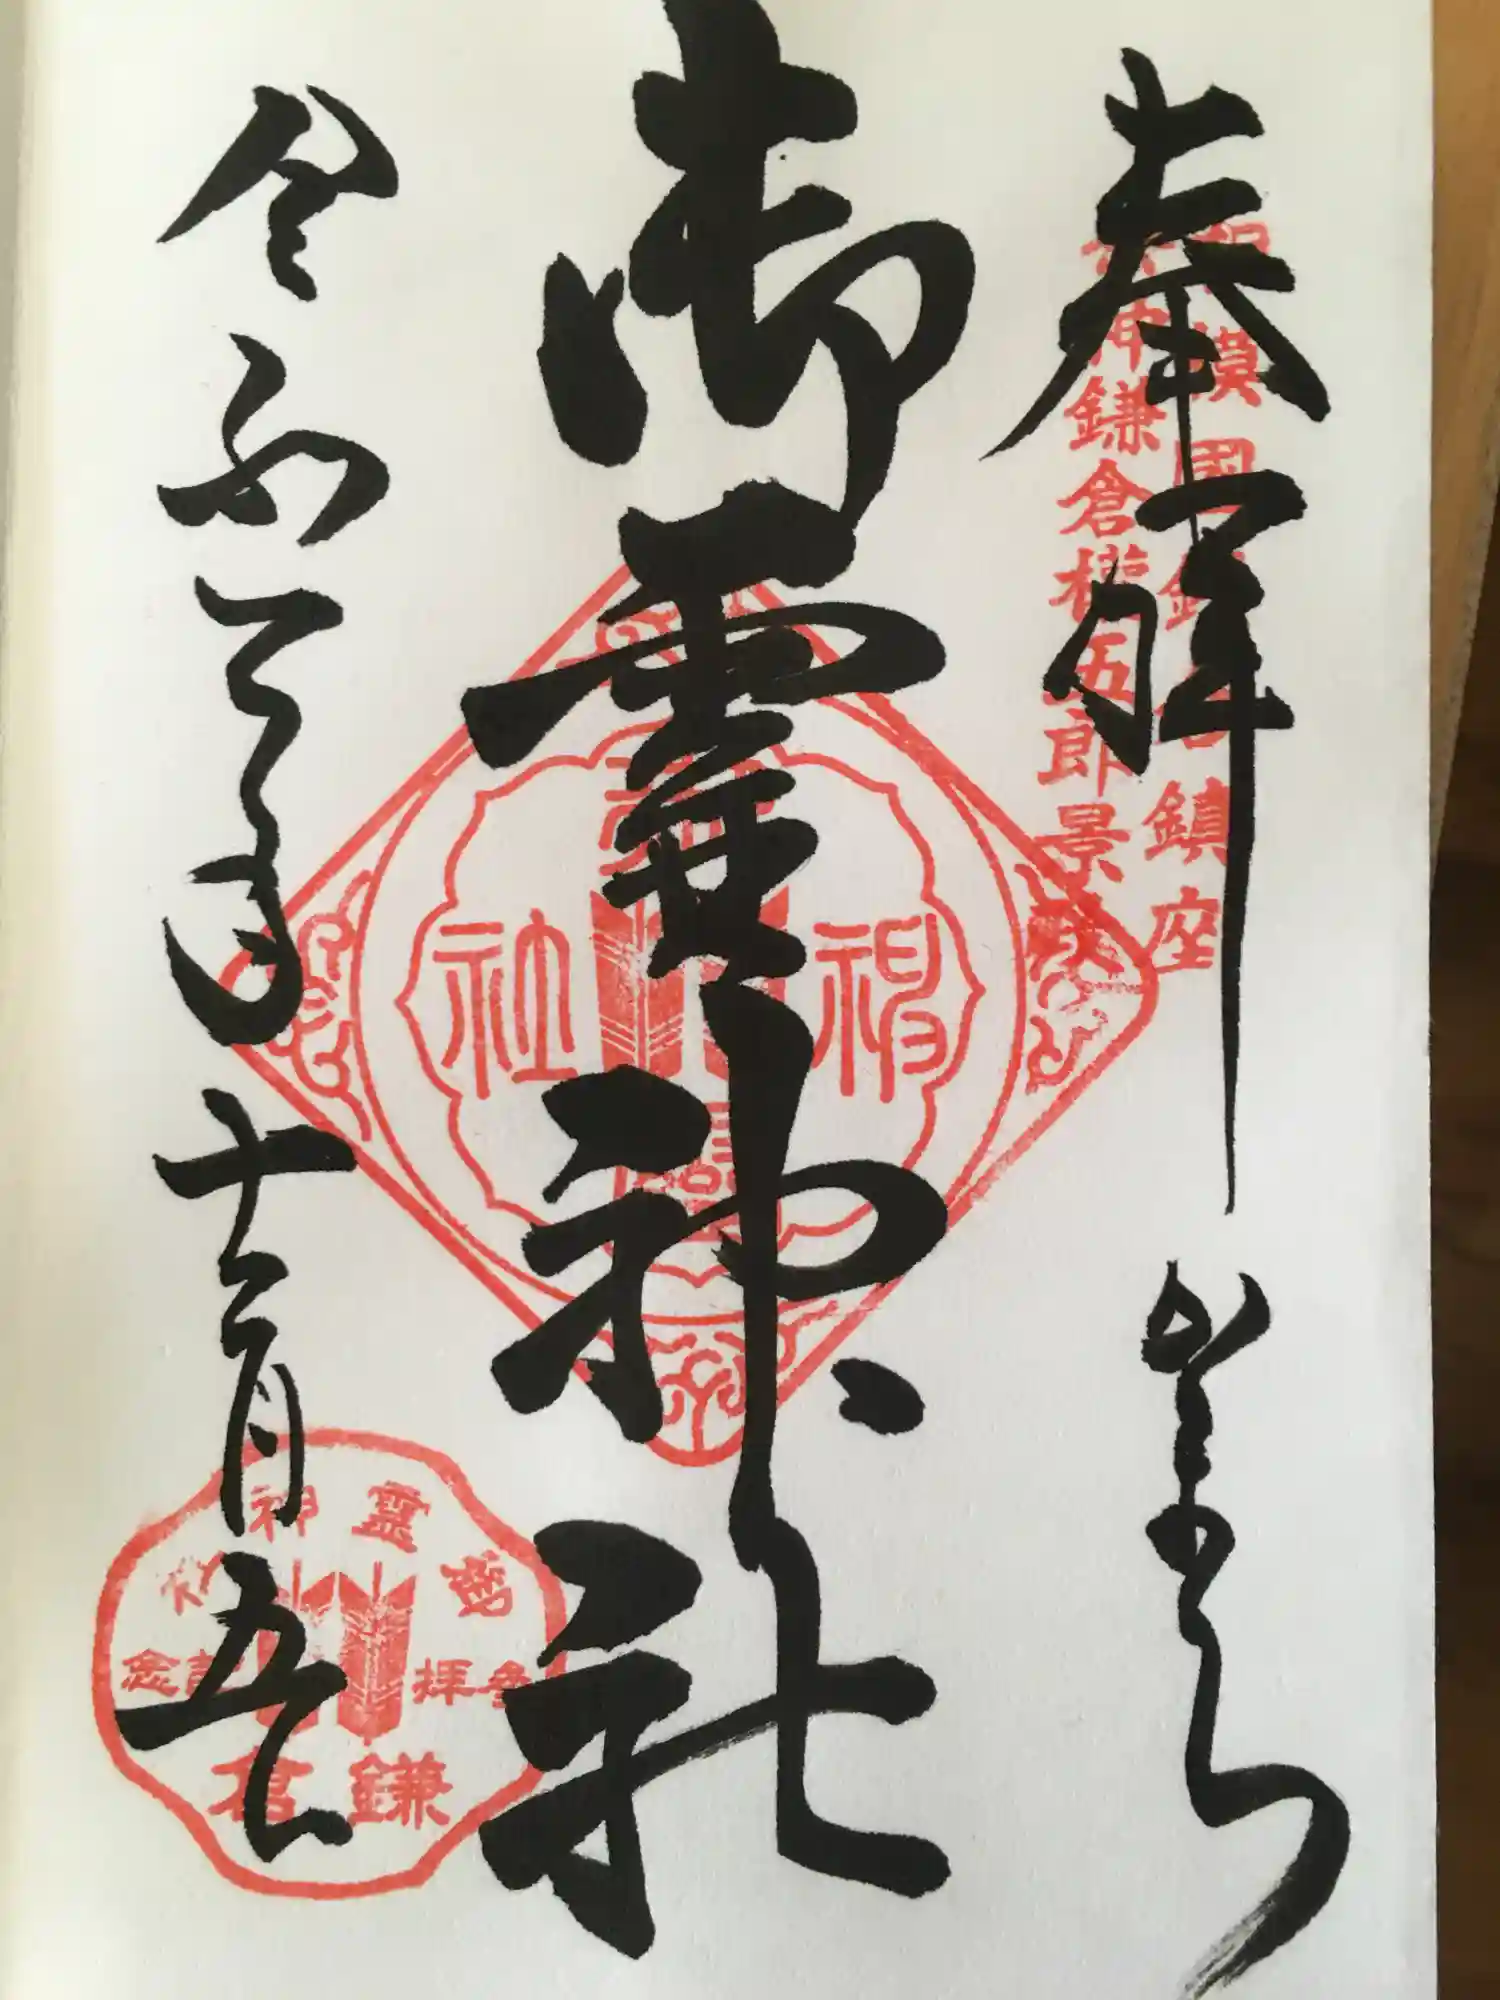 奉拝 かまくら
相模國鎌倉鎮座
祭神鎌倉權五郎景政
御霊神社
神
社
令和三年十二月五日
御靈神社
参拝記念
鎌倉